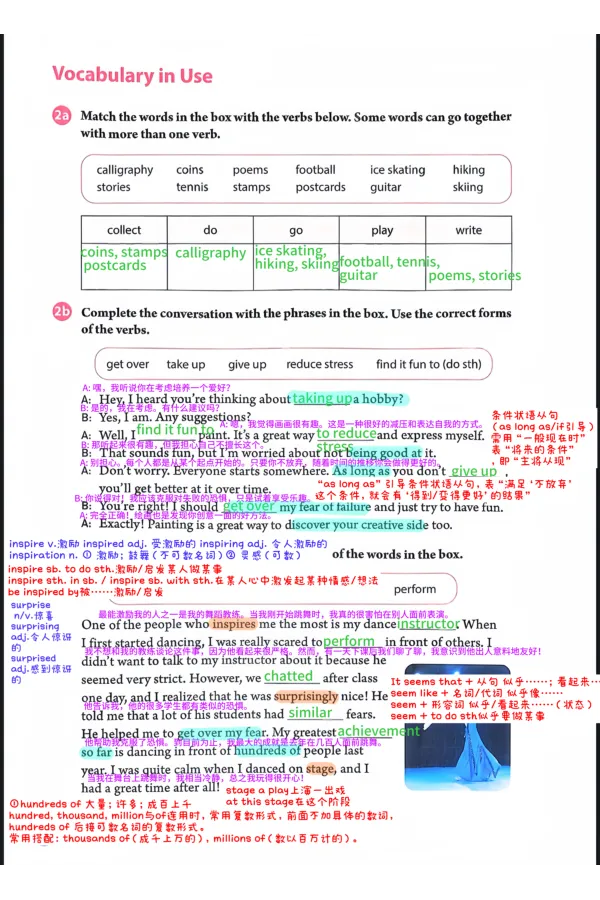 Vocabulary in Use
2a Match the words in the box with the verbs below. Some words can go together
with more than one verb.
calligraphy coins poems football ice skating hiking
stories tennis stamps postcards guitar skiing
collect do go play write
coins, stamps postcards
calligraphy
ice skating, hiking, skiing
football, tennis, guitar
poems, stories
2b Complete the conversation with the phrases in the box. Use the correct forms
of the verbs.
get over take up give up reduce stress find it fun to (do sth)
A: 嘿，我听说你在考虑培养一个爱好？
A: Hey, I heard you're thinking about taking up a hobby?
B: 是的，我在考虑。有什么建议吗？
B: Yes, I am. Any suggestions?
A: 嗯，我觉得画画很有趣。这是一种很好的减压和表达自我的方式。
A: Well, I find it fun to paint. It's a great way to reduce stress and express myself.
B: 那听起来很有趣，但我担心自己不擅长这个。
B: That sounds fun, but I'm worried about not being good at it.
A: 别担心。每个人都是从某个起点开始的。只要你不放弃，随着时间的推移你会做得更好的。
A: Don't worry. Everyone starts somewhere. As long as you don't give up ,
you'll get better at it over time.
B: 你说得对！我应该克服对失败的恐惧，只是试着享受乐趣。
B: You're right! I should get over my fear of failure and just try to have fun.
A: 完全正确！绘画也是发现你创意一面的好方法。
A: Exactly! Painting is a great way to discover your creative side too.
条件状语从句
（as long as/if引导）
需用“一般现在时”
表“将来的条件”
，即“主将从现”
“as long as”引导条件状语从句，表“满足‘不放弃’
这个条件，就会有‘得到/变得更好’的结果”
inspire v.激励 inspired adj. 受激励的 inspiring adj. 令人激励的
inspiration n. ① 激励；鼓舞（不可数名词）② 灵感（可数）
inspire sb. to do sth.激励/启发某人做某事
inspire sth. in sb. / inspire sb. with sth.在某人心中激发起某种情感/想法
be inspired by被……激励/启发
of the words in the box.
perform
surprise
n/v.惊喜
surprising
adj.令人惊讶
的
surprised
adj.感到惊讶
的
最能激励我的人之一是我的舞蹈教练。当我刚开始跳舞时，我真的很害怕在别人面前表演。
One of the people who inspires me the most is my dance instructor. When
I first started dancing, I was really scared to perform in front of others. I
我不想和我的教练谈论这件事，因为他看起来很严格。然而，有一天下课后我们聊了聊，我意识到他出人意料地友好！
didn't want to talk to my instructor about it because he
seemed very strict. However, we chatted after class
one day, and I realized that he was surprisingly nice! He
他告诉我，他的很多学生都有类似的恐惧。
told me that a lot of his students had similar fears.
He helped me to get over my fear. My greatest achievement
他帮助我克服了恐惧。到目前为止，我最大的成就是去年在几百人面前跳舞。
so far is dancing in front of hundreds of people last
year. I was quite calm when I danced on stage, and I
当我在舞台上跳舞时，我相当冷静，总之我玩得很开心！
had a great time after all!
It seems that + 从句 似乎……；看起来……
seem like + 名词/代词 似乎像……
seem + 形容词 似乎/看起来……（状态）
seem + to do sth似乎要做某事
stage a play上演一出戏
at this stage在这个阶段
①hundreds of 大量；许多；成百上千
hundred, thousand, million与of连用时，常用复数形式，前面不加具体的数词，
hundreds of 后接可数名词的复数形式。
常用搭配：thousands of（成千上万的），millions of（数以百万计的）。